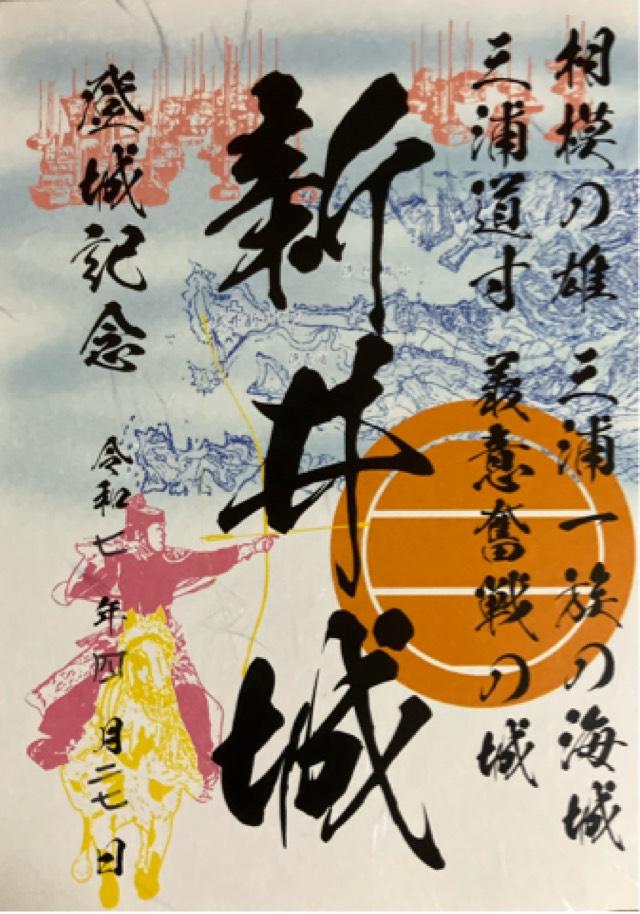 相模の雄 三浦一族の海城
三浦道寸 義意奮戦の城
新井城
登城記念
令和七年四月二七日